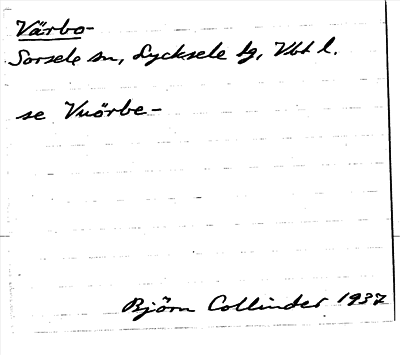 Värbo-
Sorsele sn, Lycksele tg, Vbt l.
se Vuörbe-
Björn Collinder 1937